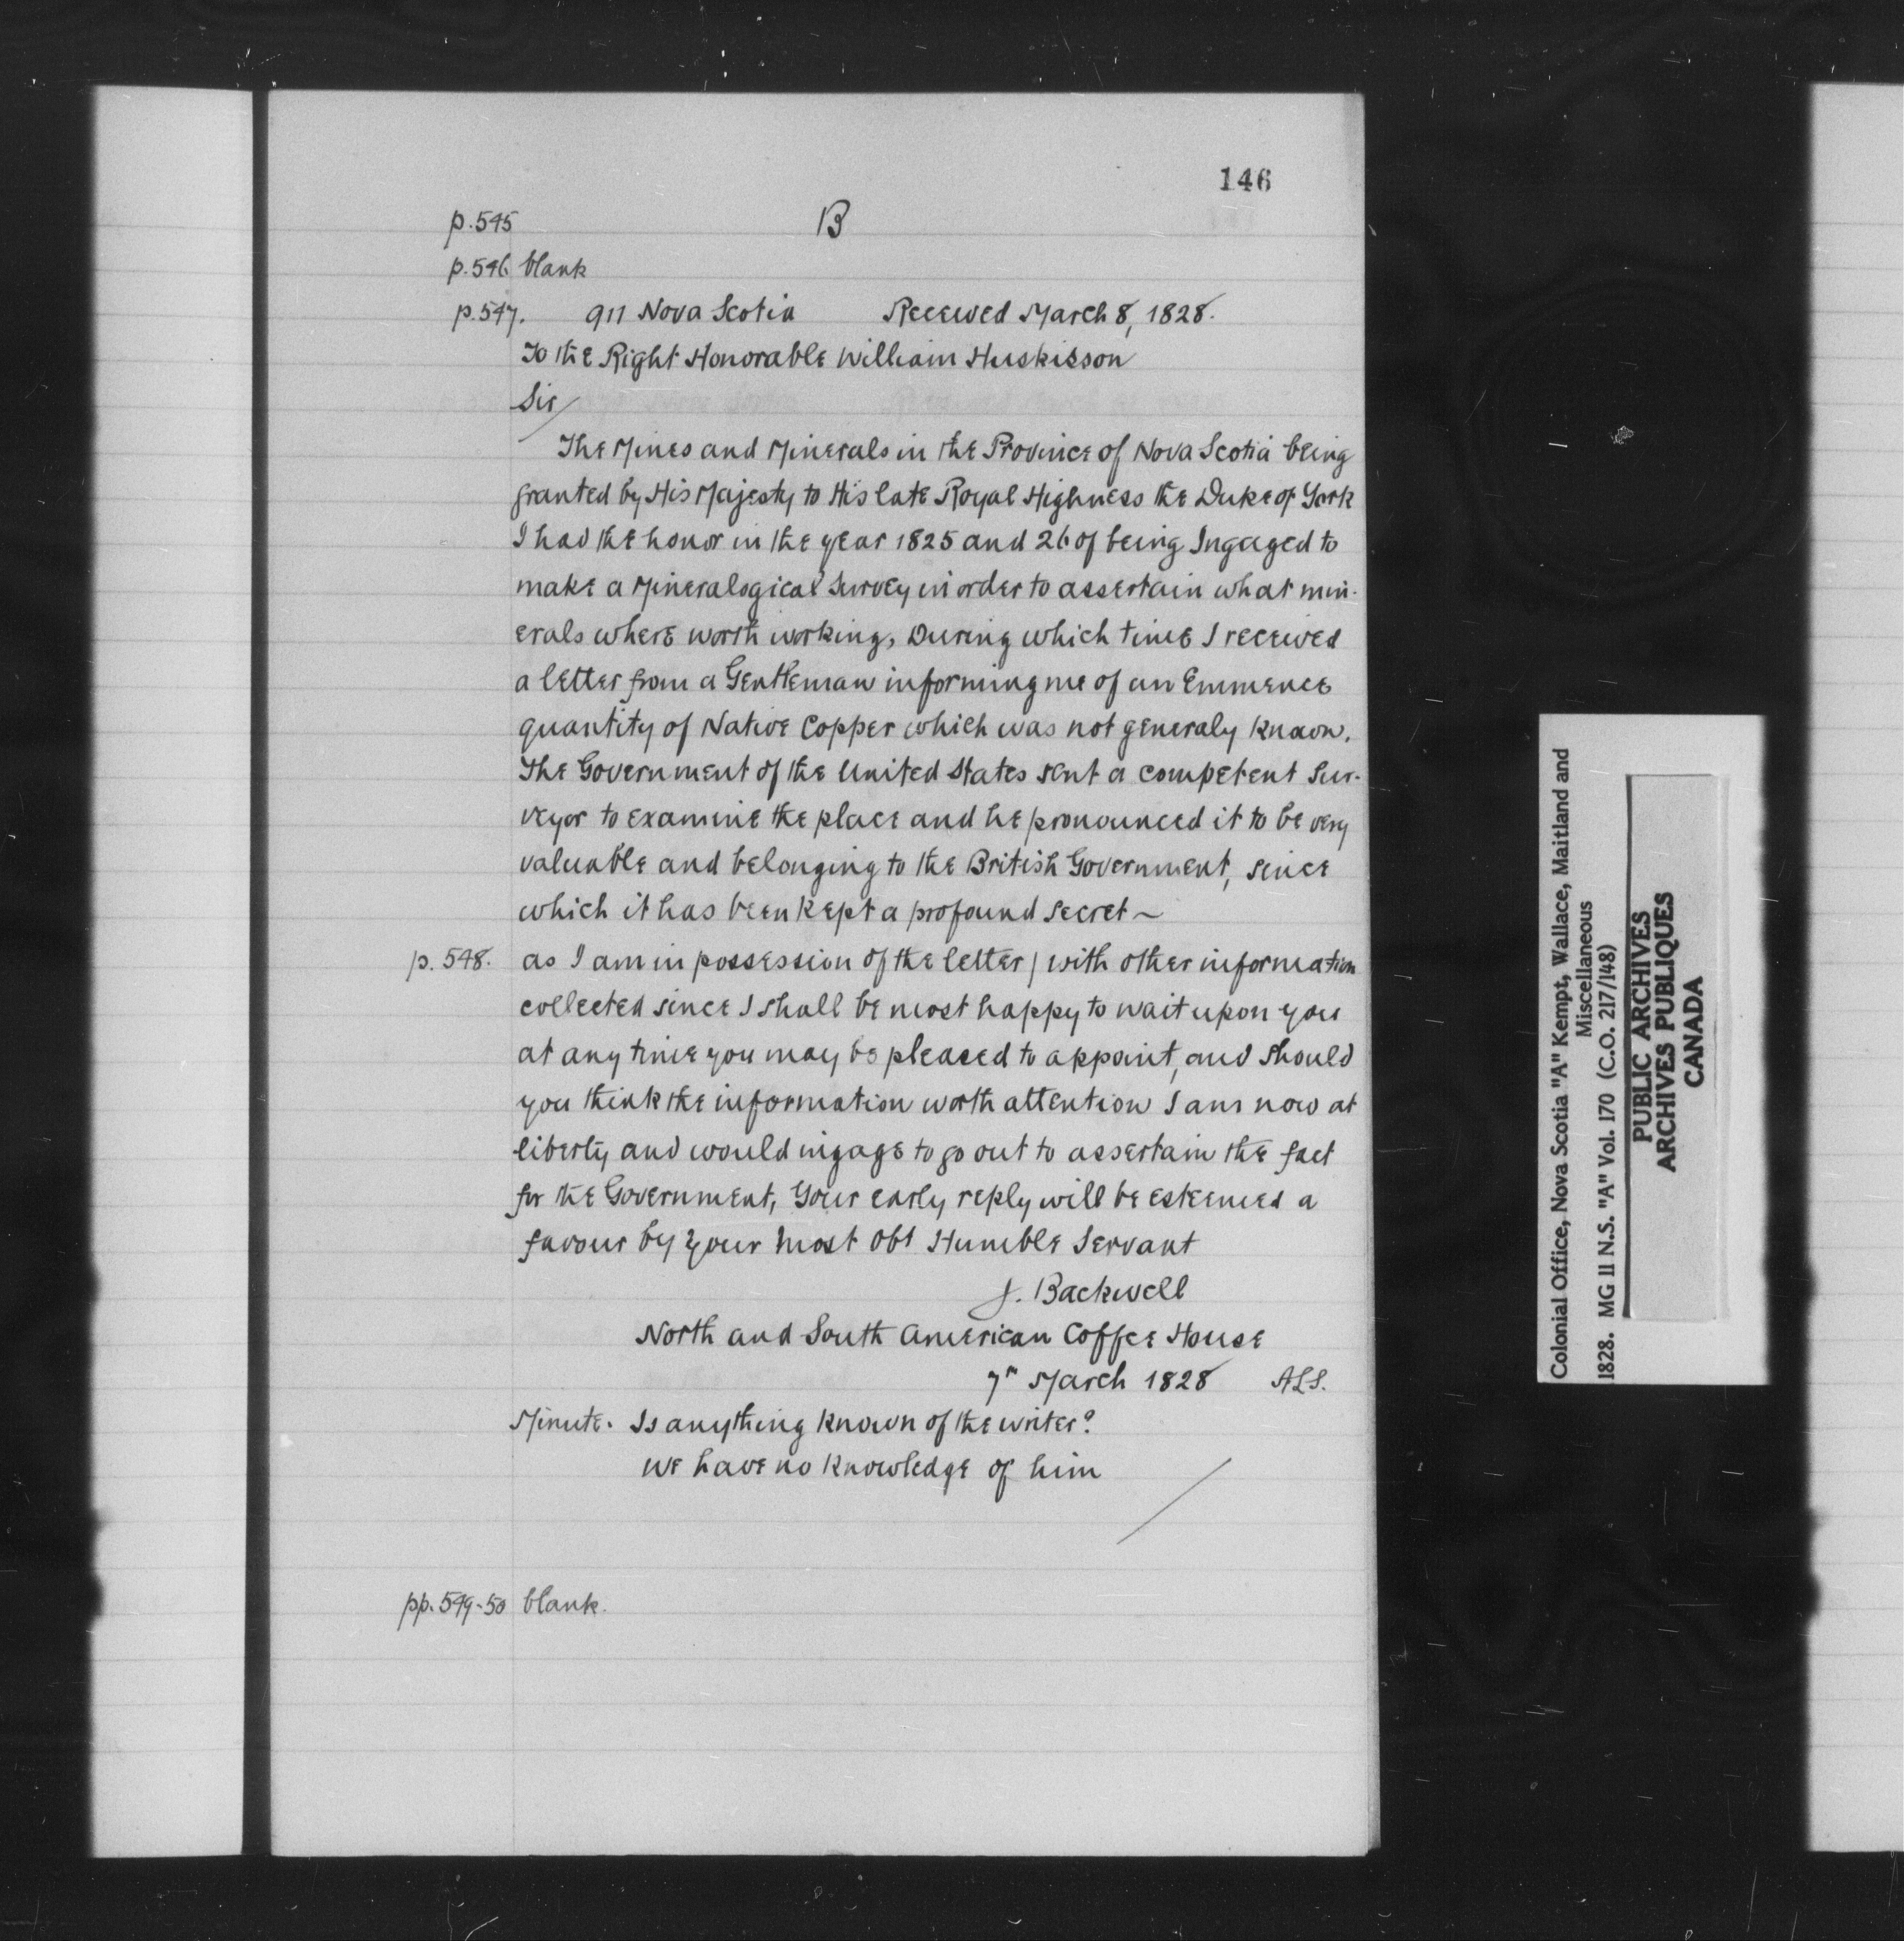 146
p.545 B
p.546 blank
p.547. 911 Nova Scotia Received March 8, 1828.
To the Right Honorable William Huskisson
Sir/
The Mines and Minerals in the Province of Nova Scotia being
granted by His Majesty to His late Royal Highness the Duke of York
I had the honor in the year 1825 and 26 of being Ingaged to
make a Mineralogical Survey in order to assertain what min-
erals where worth working, During which time I received
a letter from a Gentleman informing me of an Emmence
quantity of Native Copper which was not generaly known.
The Government of the United States sent a competent Sur-
veyor to examine the place and he pronounced it to be very
valuable and belonging to the British Government, since
which it has been kept a profound secret ~
p. 548. as I am in possession of the letter / with other information
collected since I shall be most happy to wait upon you
at any time you may be pleased to appoint, and should
you think the information worth attention I am now at
liberty and would ingage to go out to assertain the fact
for the Government, Your early reply will be esteemed a
favour by your most Obt Humble Servant
J. Backwell
North and South American Coffee House
7th March 1828 ALS.
Minute. Is anything known of the writer?
We have no knowledge of him
pp. 549-50 blank.
Colonial Office, Nova Scotia "A" Kempt, Wallace, Maitland and
Miscellaneous
1828. MG 11 N.S. "A" Vol. 170 (C.O. 217/148)
PUBLIC ARCHIVES
ARCHIVES PUBLIQUES
CANADA